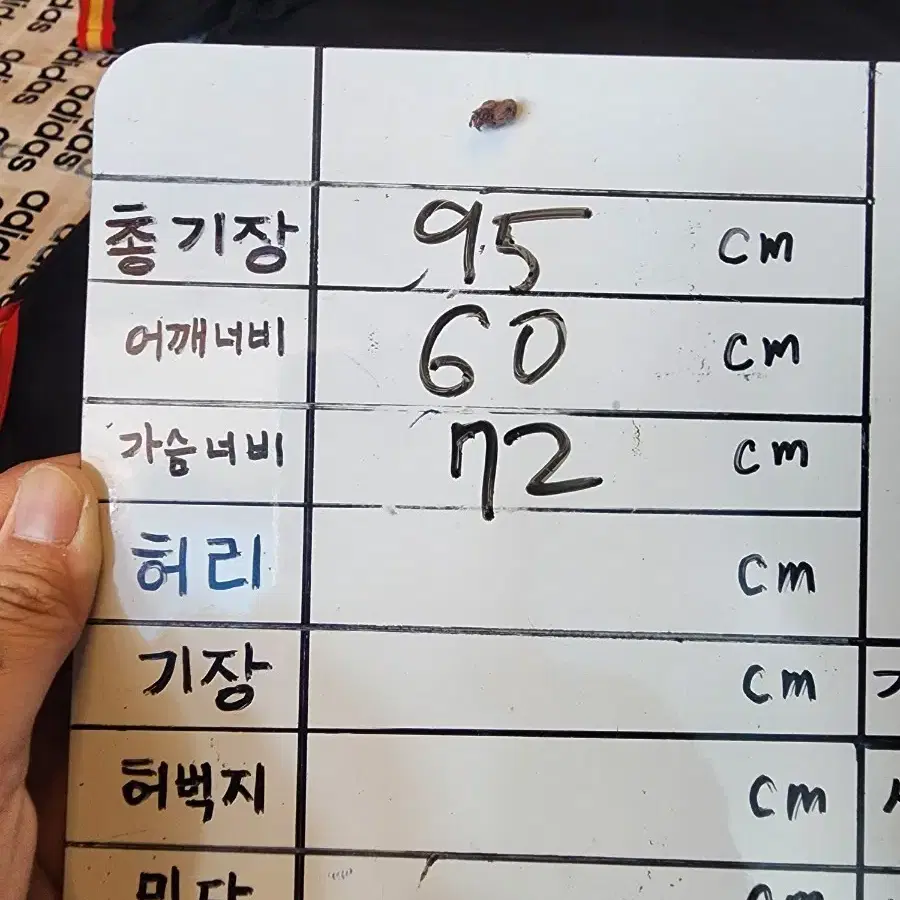 adidas
adidas
adidas
adidas
총기장 95 cm
어깨너비 60 cm
가슴너비 72 cm
허리 cm
기장 cm
허벅지 cm
밑단 cm